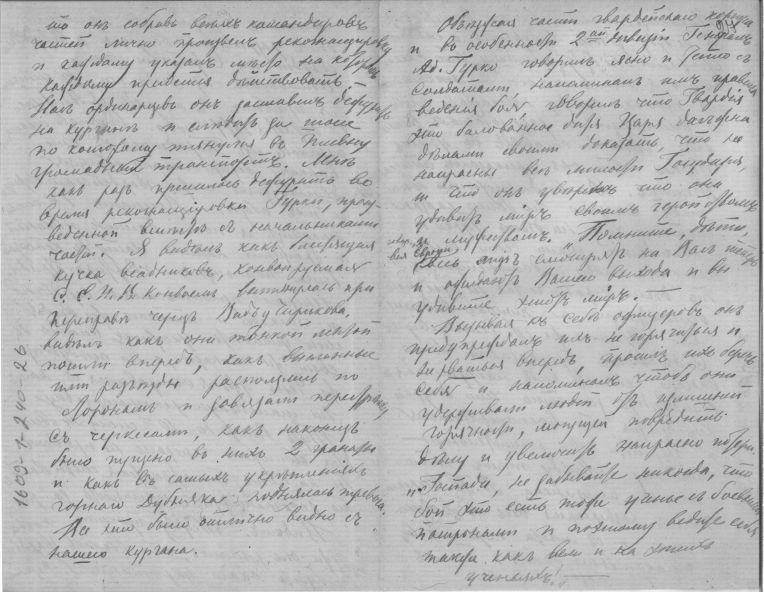 то онъ собравъ всѣхъ командировъ
частей лично произвелъ рекогносцировку
и каждому указалъ мѣсто на которомъ
каждому придется дѣйствовать.
Насъ ординарцевъ онъ заставилъ дежурить
на курганѣ и слѣдить за шоссе
по которому тянулся въ Плевну
громадный транспортъ. Мнѣ
какъ разъ пришлось дежурить во
время рекогносцировки Гурки, произ-
веденной вмѣстѣ съ начальниками
частей. Я видѣлъ какъ блестящая
кучка всадниковъ, конвоируемая
С. Е. И. В. Конвоемъ вытянулась при
переправѣ черезъ Видъ у Чирикова.
Видѣлъ какъ они тонкой лентой
пошли впередъ, какъ высланные
ими разъѣзды расползлись по
сторонамъ и завязали перестрѣлку
съ черкесами, какъ наконецъ
было пущено въ нихъ 2 гранаты
и какъ въ самыхъ укрѣпленіяхъ
горнаго Дубняка поднялась тревога.
Все это было отлично видно съ
нашего кургана.
1609-1-240-26
Объѣзжая части гвардейскаго корпуса
и въ особенности 2ой дивизіи Генералъ
Ад. Гурко говорилъ ясно и просто съ
Солдатами, напоминалъ имъ правила
веденія боя, говорилъ что Гвардія
это балованное дитя Царя должна
дѣлами своими доказать, что не
напрасны всѣ милости Государя,
и что онъ увѣренъ что она
удивитъ міръ своимъ геройствомъ
и мужествомъ. "Помните, дѣти,
весь міръ смотритъ на Васъ теперь
и ожидаетъ Вашего выхода и вы
удивите этотъ міръ.—
Вызывая къ себѣ офицеровъ онъ
предупреждалъ ихъ не горячиться и
не рваться впередъ, просилъ ихъ беречь
себя и напоминалъ чтобъ они
удерживали людей отъ излишней
горячности, могущей повредить
дѣлу и увеличить напрасно потери.
"Господа, не забывайте никогда, что
бой это есть тоже ученье съ боевыми
патронами и поэтому ведите себя
также какъ вели и на этихъ
ученьяхъ!—